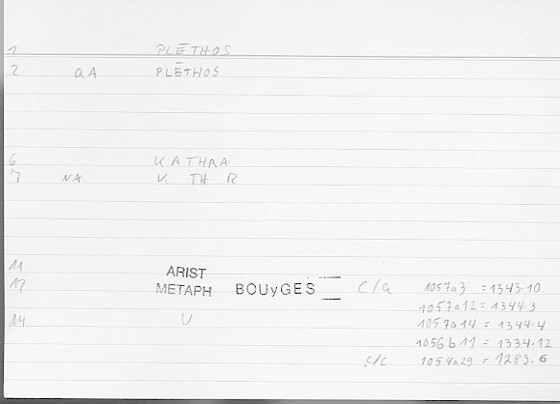 1 PLĒTHOS
2 QA PLĒTHOS
6 KATHRA
7 NA K TH R
11 ARIST
12 METAPH BOUyGES C/G 1057a3 = 1343.10
1057a12 = 1344.3
14 U 1057a14 = 1344.4
1056b11 = 1334.12
C/C 1054a29 = 1283.6